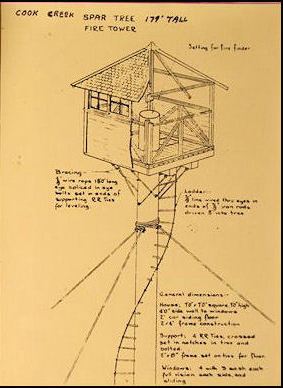 COOK CREEK SPAR TREE 179' TALL
FIRE TOWER
Setting for fire finder
Bracing -
wire rope 180' long
eye spliced in eye
bolts set in ends of
supporting RR Ties
for leveling
Ladder -
line wired thru eyes in
ends of iron rods
driven into tree
General dimensions -
House; 10' x 10' square, 10' high
40" side wall to windows
2" car siding floor
2x4" frame construction
Support; 4 RR Ties, crossed
set in notches in tree and
bolted.
frame set on ties for floor
Windows; 4 with 3 sash each
full vision each side, and
sliding